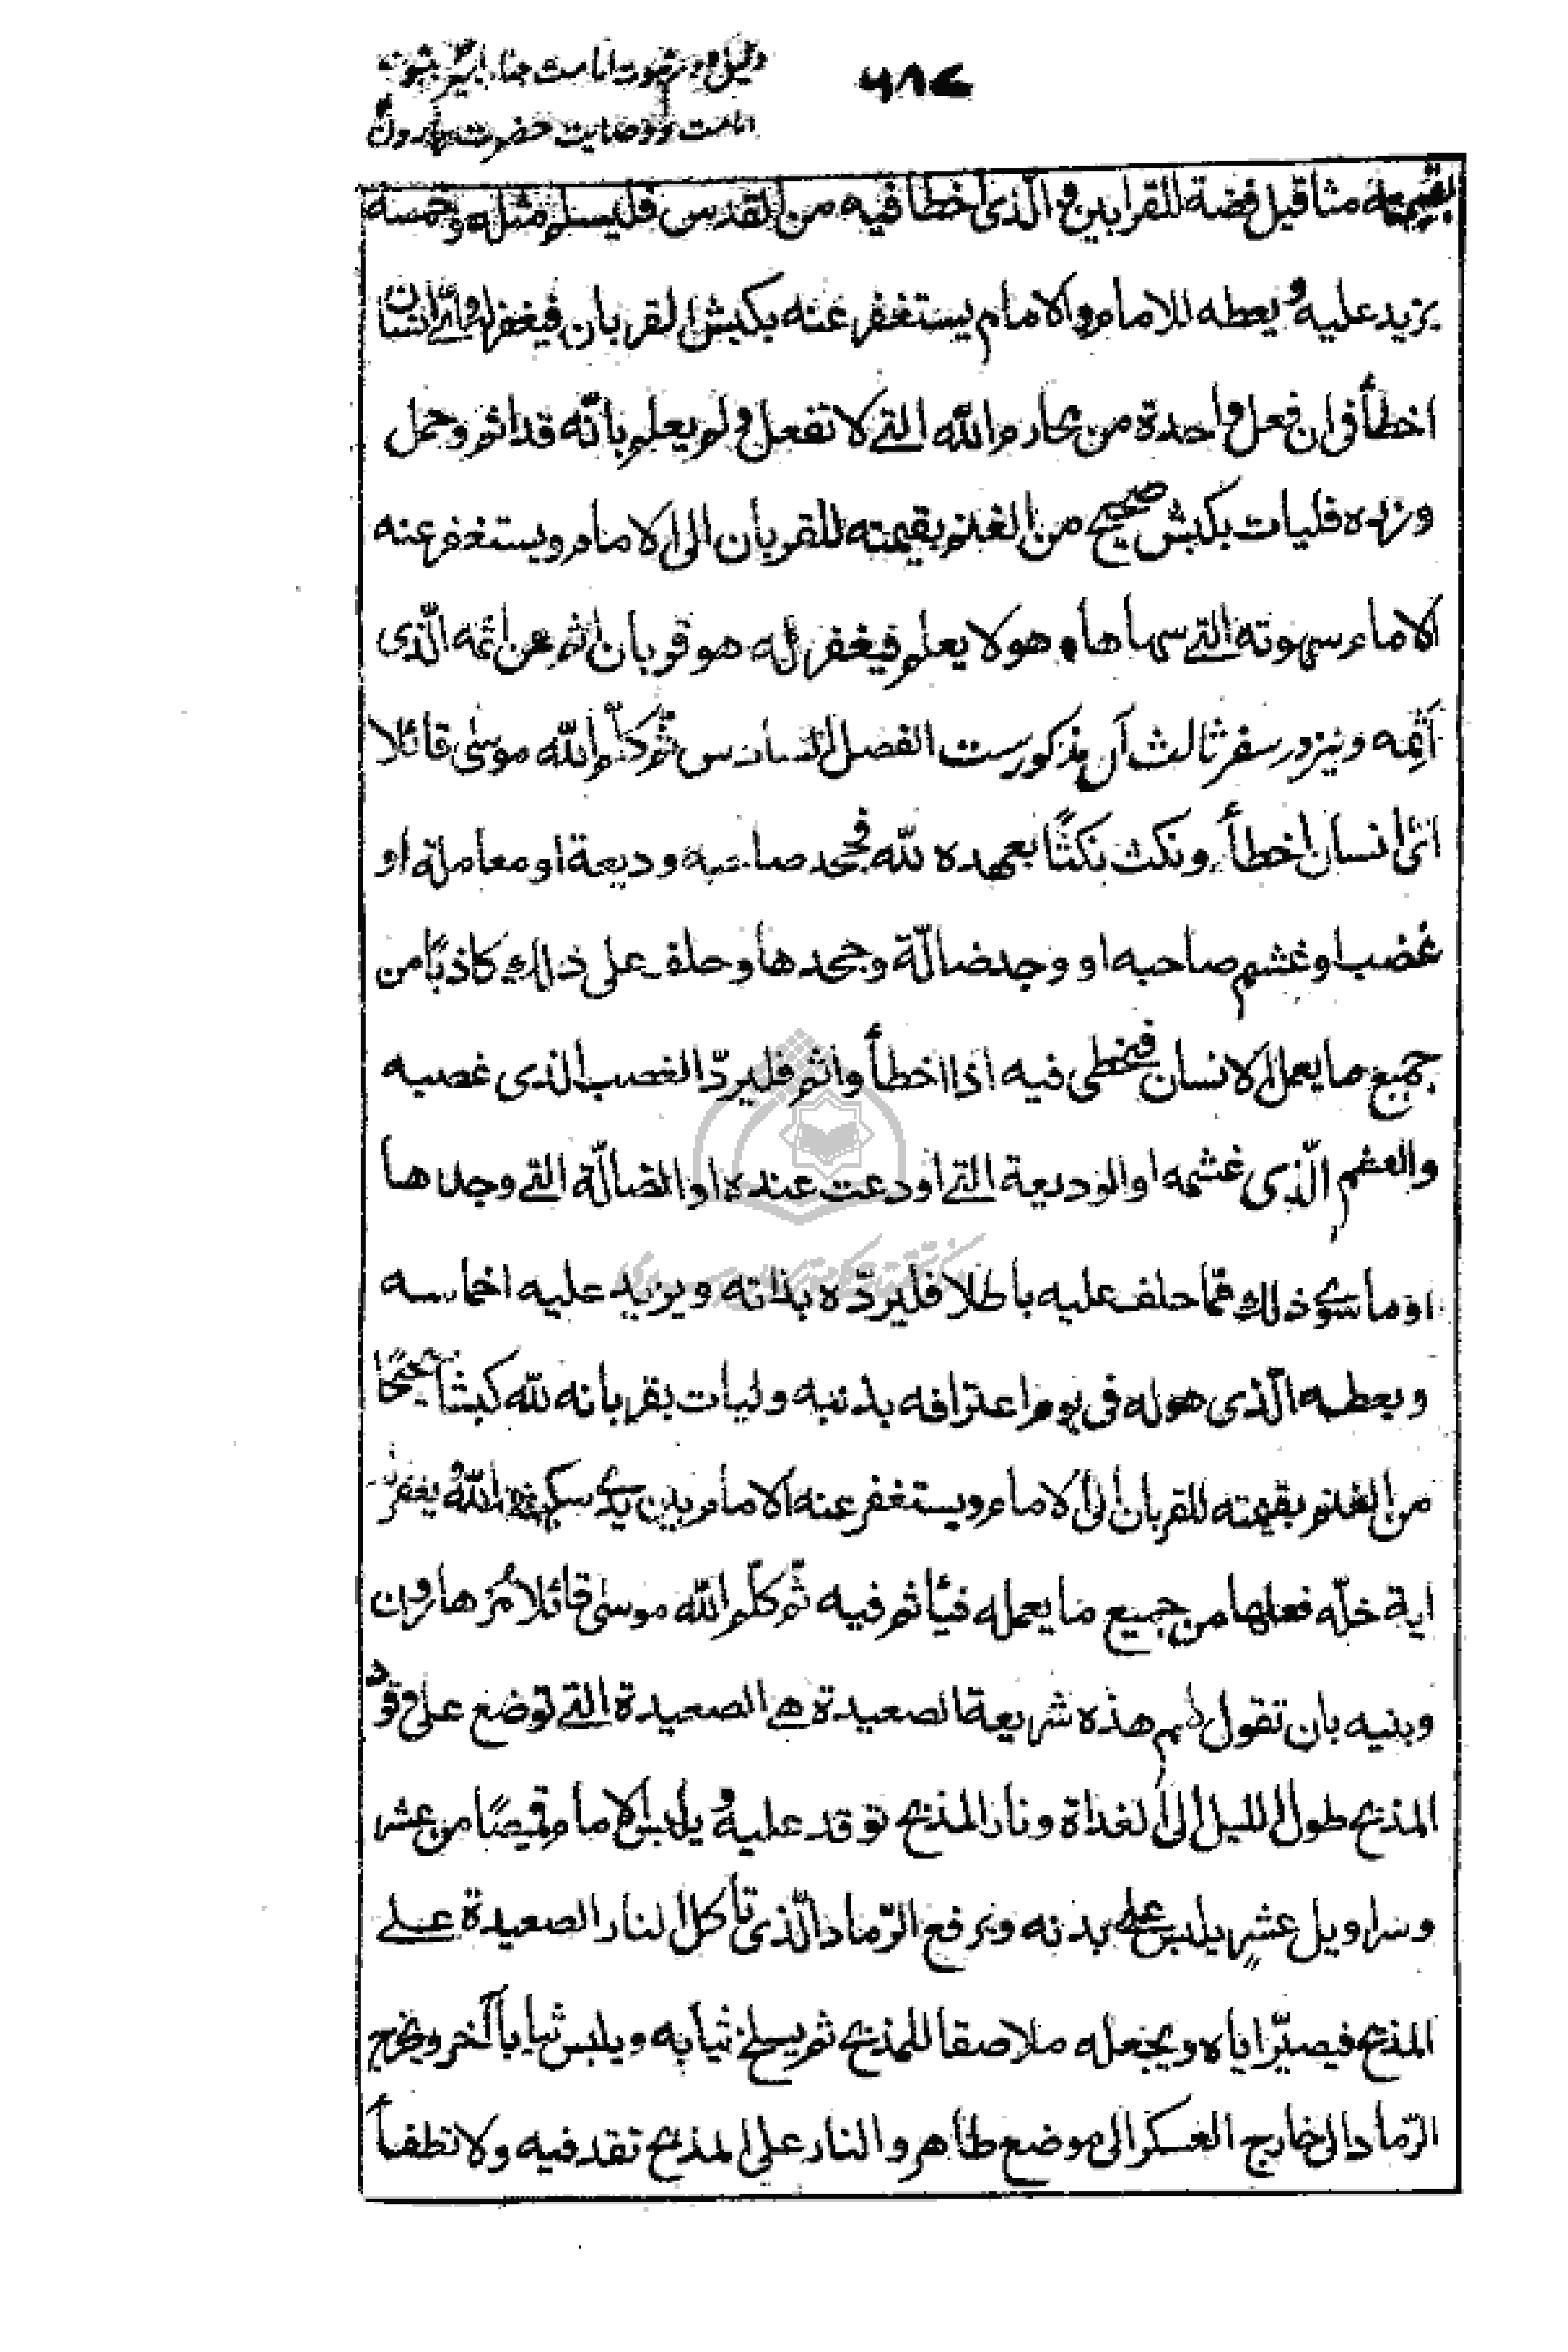 دلیل دوم ثبوت امامت جناب امیر بثبوت
۶۸۷
امامت و وصایت حضرت هارون
بقیمته مثاقیل فضة للقرابین و الّذی اخطأ فیه من القدس فلیسلم مثله و خمسه
یزید علیه و یعطه للامام و الامام یستغفر عنه بکبش القربان فیغفر له و ایّ انسان
اخطأ و ان فعل واحدة من محارم الله التی لا تفعل و لم یعلم بانّه قد اثم و حمل
وزره فلیات بکبش صحیح من الغنم بقیمته للقربان الی الامام و یستغفر عنه
الامام سهوته التی سهاها و هو لا یعلم فیغفر له هو قربان اثم عن اثمه الّذی
اثمه و نیز در سفر ثالث آن مذکورست الفصل السادس ثم کلّم الله موسی قائلا
ایّ انسان اخطأ و نکث نکثًا بعهده لله فجحد صاحبه ودیعة او معاملة او
غضب او غشم صاحبه او وجد ضالّة و جحدها و حلف علی ذلک کاذبًا من
جمیع ما یعمل الانسان فیخطی فیه اذا اخطأ و اثم فلیردّ الغصب الذی غصبه
والغشم الّذی غشمه او الودیعة التی اودعت عنده او الضالّة التی وجدها
او ما سوی ذلک ممّا حلف علیه باطلا فلیردّه بذاته و یزید علیه اخماسه
و یعطیه الّذی هو له فی یوم اعترافه بذنبه و لیات بقربانه لله کبشا صحیحًا
من الغنم بقیمته للقربان الی الامام و یستغفر عنه الامام بین یدی الله یغفر
ایة خلّه فعلها من جمیع ما یعمله فیأثم فیه ثم کلّم الله موسی قائلا مُر هارون
و بنیه بان تقول لهم هذه شریعة الصعیدة هی الصعیدة التی توضع علی وقود
المذبح طول اللیل الی الغداة و نار المذبح توقد علیه و یلبس الامام قمیصًا من عشر
و سراویل عشرٍ یلبس علی بدنه و یرفع الرّماد الّذی تأکل النار الصعیدة علی
المذبح فیصیّر ایاه و یجعله ملاصقا للمذبح ثم یسلخ ثیابه و یلبس ثیابا آخر و یخرج
الرّماد الی خارج العسکر الی موضع طاهر و النار علی المذبح تقد فیه و لا تطفأ